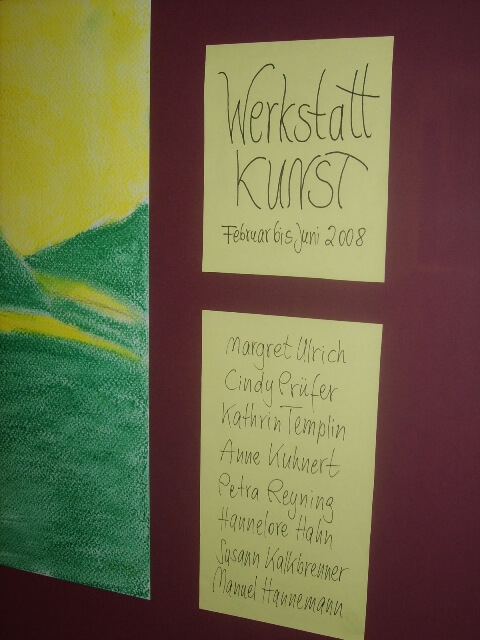 Werkstatt
KUNST
Februar bis Juni 2008
Margret Ulrich
Cindy Prüfer
Kathrin Templin
Anne Kuhnert
Petra Reyning
Hannelore Hahn
Susann Kalkbrenner
Manuel Hannemann